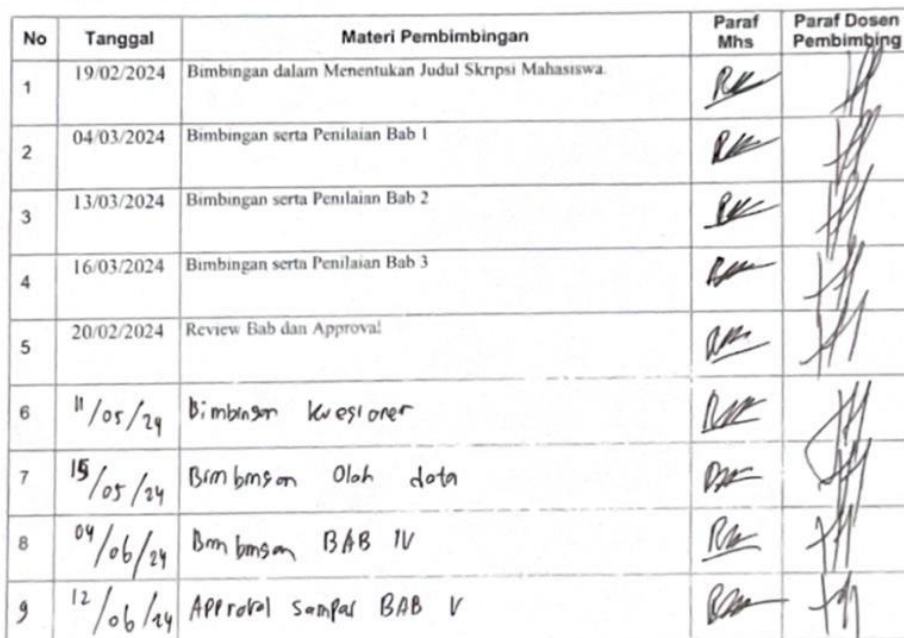 No Tanggal Materi Pembimbingan Paraf Mhs Paraf Dosen Pembimbing
1 19/02/2024 Bimbingan dalam Menentukan Judul Skripsi Mahasiswa.
2 04/03/2024 Bimbingan serta Penilaian Bab 1
3 13/03/2024 Bimbingan serta Penilaian Bab 2
4 16/03/2024 Bimbingan serta Penilaian Bab 3
5 20/02/2024 Review Bab dan Approval
6 11/05/24 Bimbingan Kuesioner
7 15/05/24 Bimbingan Olah data
8 04/06/24 Bimbingan BAB IV
9 12/06/24 Approval sampai BAB V